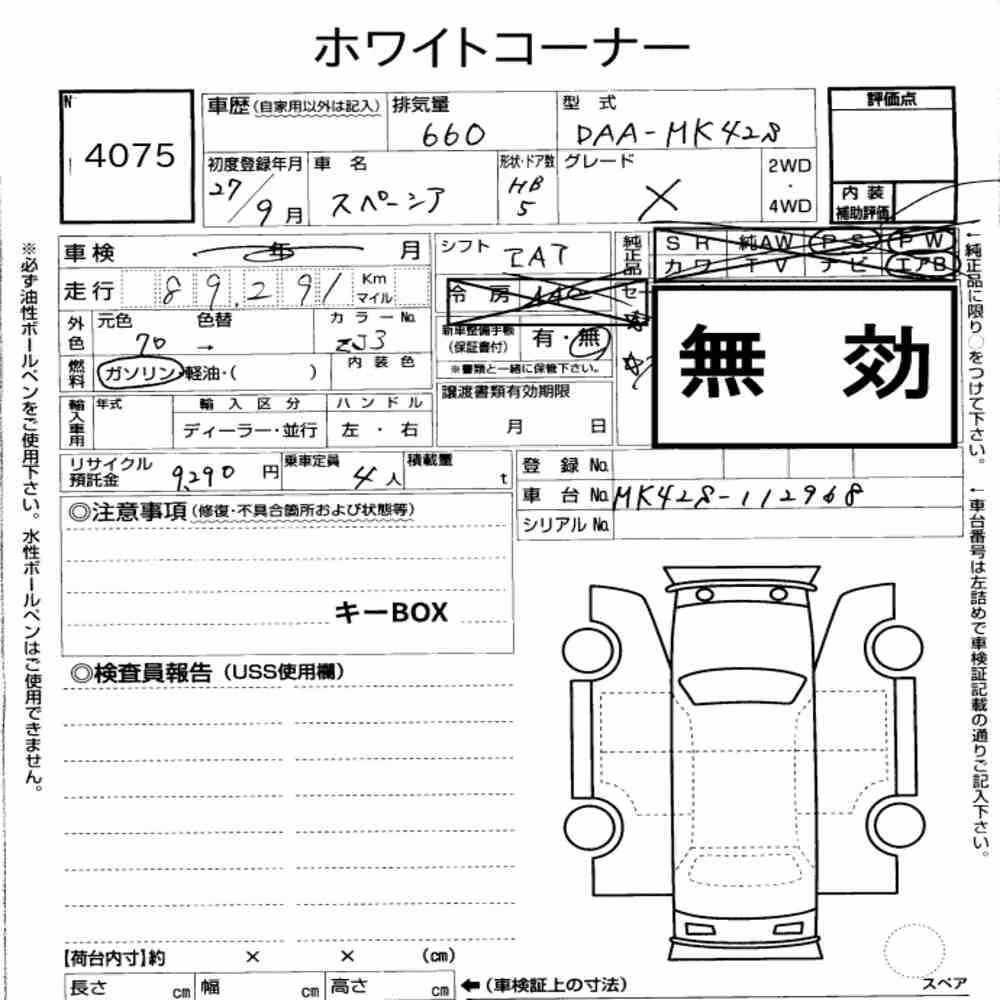 ホワイトコーナー
N
4075
車歴(自家用以外は記入)
排気量
660
型 式
DAA-MK42S
評価点
初度登録年月
27/9月
車 名
スペーシア
形状・ドア数
HB
5
グレード
X
2WD
・
4WD
内 装
補助評価
車検 年 月
シフト
IAT
純正品
SR 純AW PS PW
カワ TV ナビ エアB
走行 89,291 Km
マイル
冷房 AAC
外色
元色 色替
70 →
カラーNo.
ZJ3
新車整備手帳
(保証書付)
有・無
※書類と一緒に保管下さい。
無 効
燃料
ガソリン・軽油・( )
内 装 色
輸入車用
年式
輸 入 区 分
ディーラー・並行
ハ ン ド ル
左 ・ 右
譲渡書類有効期限
月 日
リサイクル
預託金
9,290 円
乗車定員
4人
積載量
t
登 録 No.
車 台 No. MK42S-112968
シリアル No.
◎注意事項(修復・不具合箇所および状態等)
キーBOX
◎検査員報告(USS使用欄)
【荷台内寸】約 × × (cm)
長さ cm 幅 cm 高さ cm
←(車検証上の寸法)
スペア
※必ず油性ボールペンをご使用下さい。水性ボールペンはご使用できません。
←純正品に限り○をつけて下さい。
←車台番号は左詰めで車検証記載の通りご記入下さい。